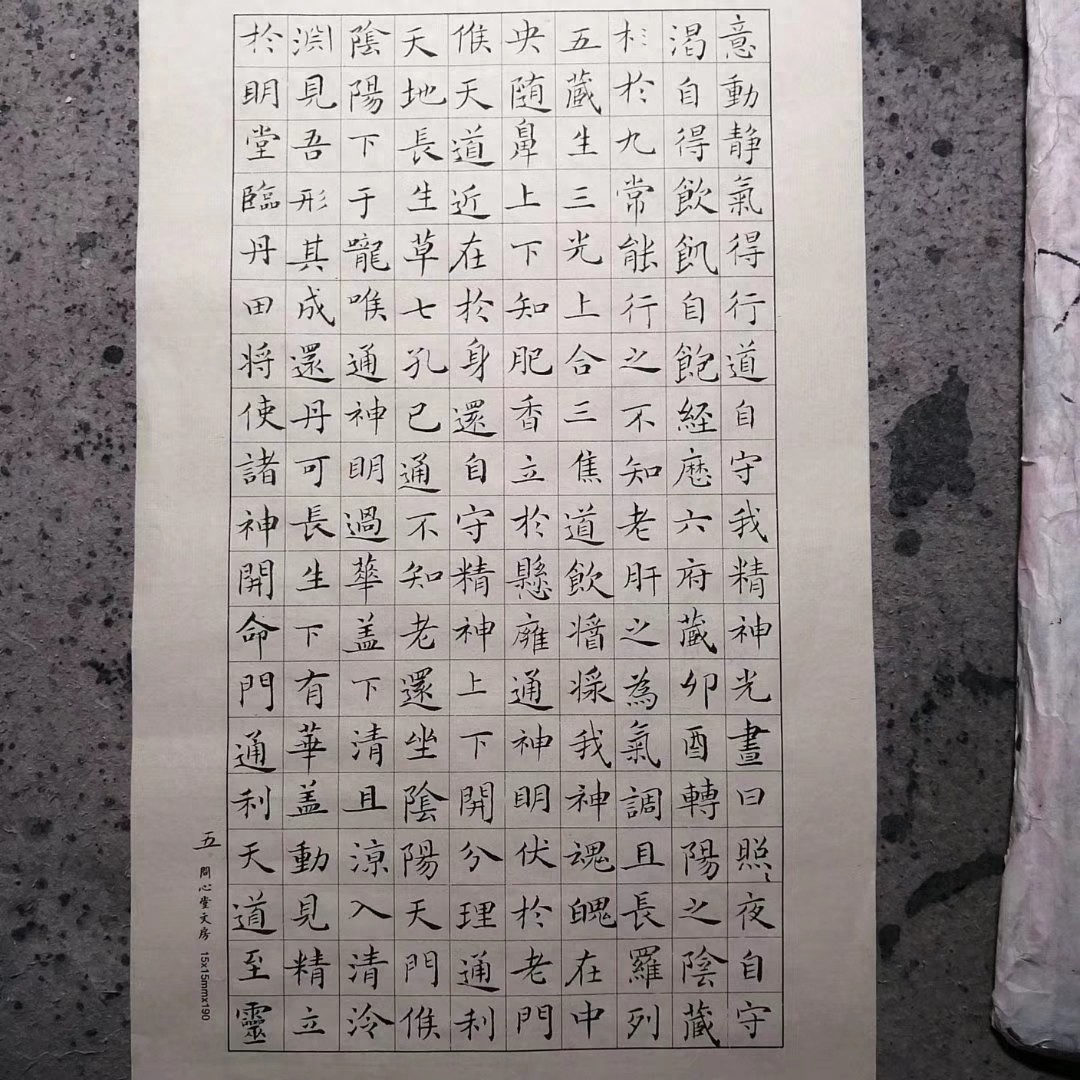 意動靜氣得行道自守我精神光晝日照夜自守
渴自得飲飢自飽經歷六府藏卯酉轉陽之陰藏
杉於九常能行之不知老肝之為氣調且長羅列
五藏生三光上合三焦道飲醬漿我神魂魄在中
央随鼻上下知肥香立於懸癰通神明伏於老門
候天道近在於身還自守精神上下開分理通利
天地長生草七孔已通不知老還坐陰陽天門候
陰陽下于嚨喉通神明過華盖下清且涼入清泠
淵見吾形其成還丹可長生下有華盖動見精立
於明堂臨丹田将使諸神開命門通利天道至靈
五 問心堂文房 15x15mmx190